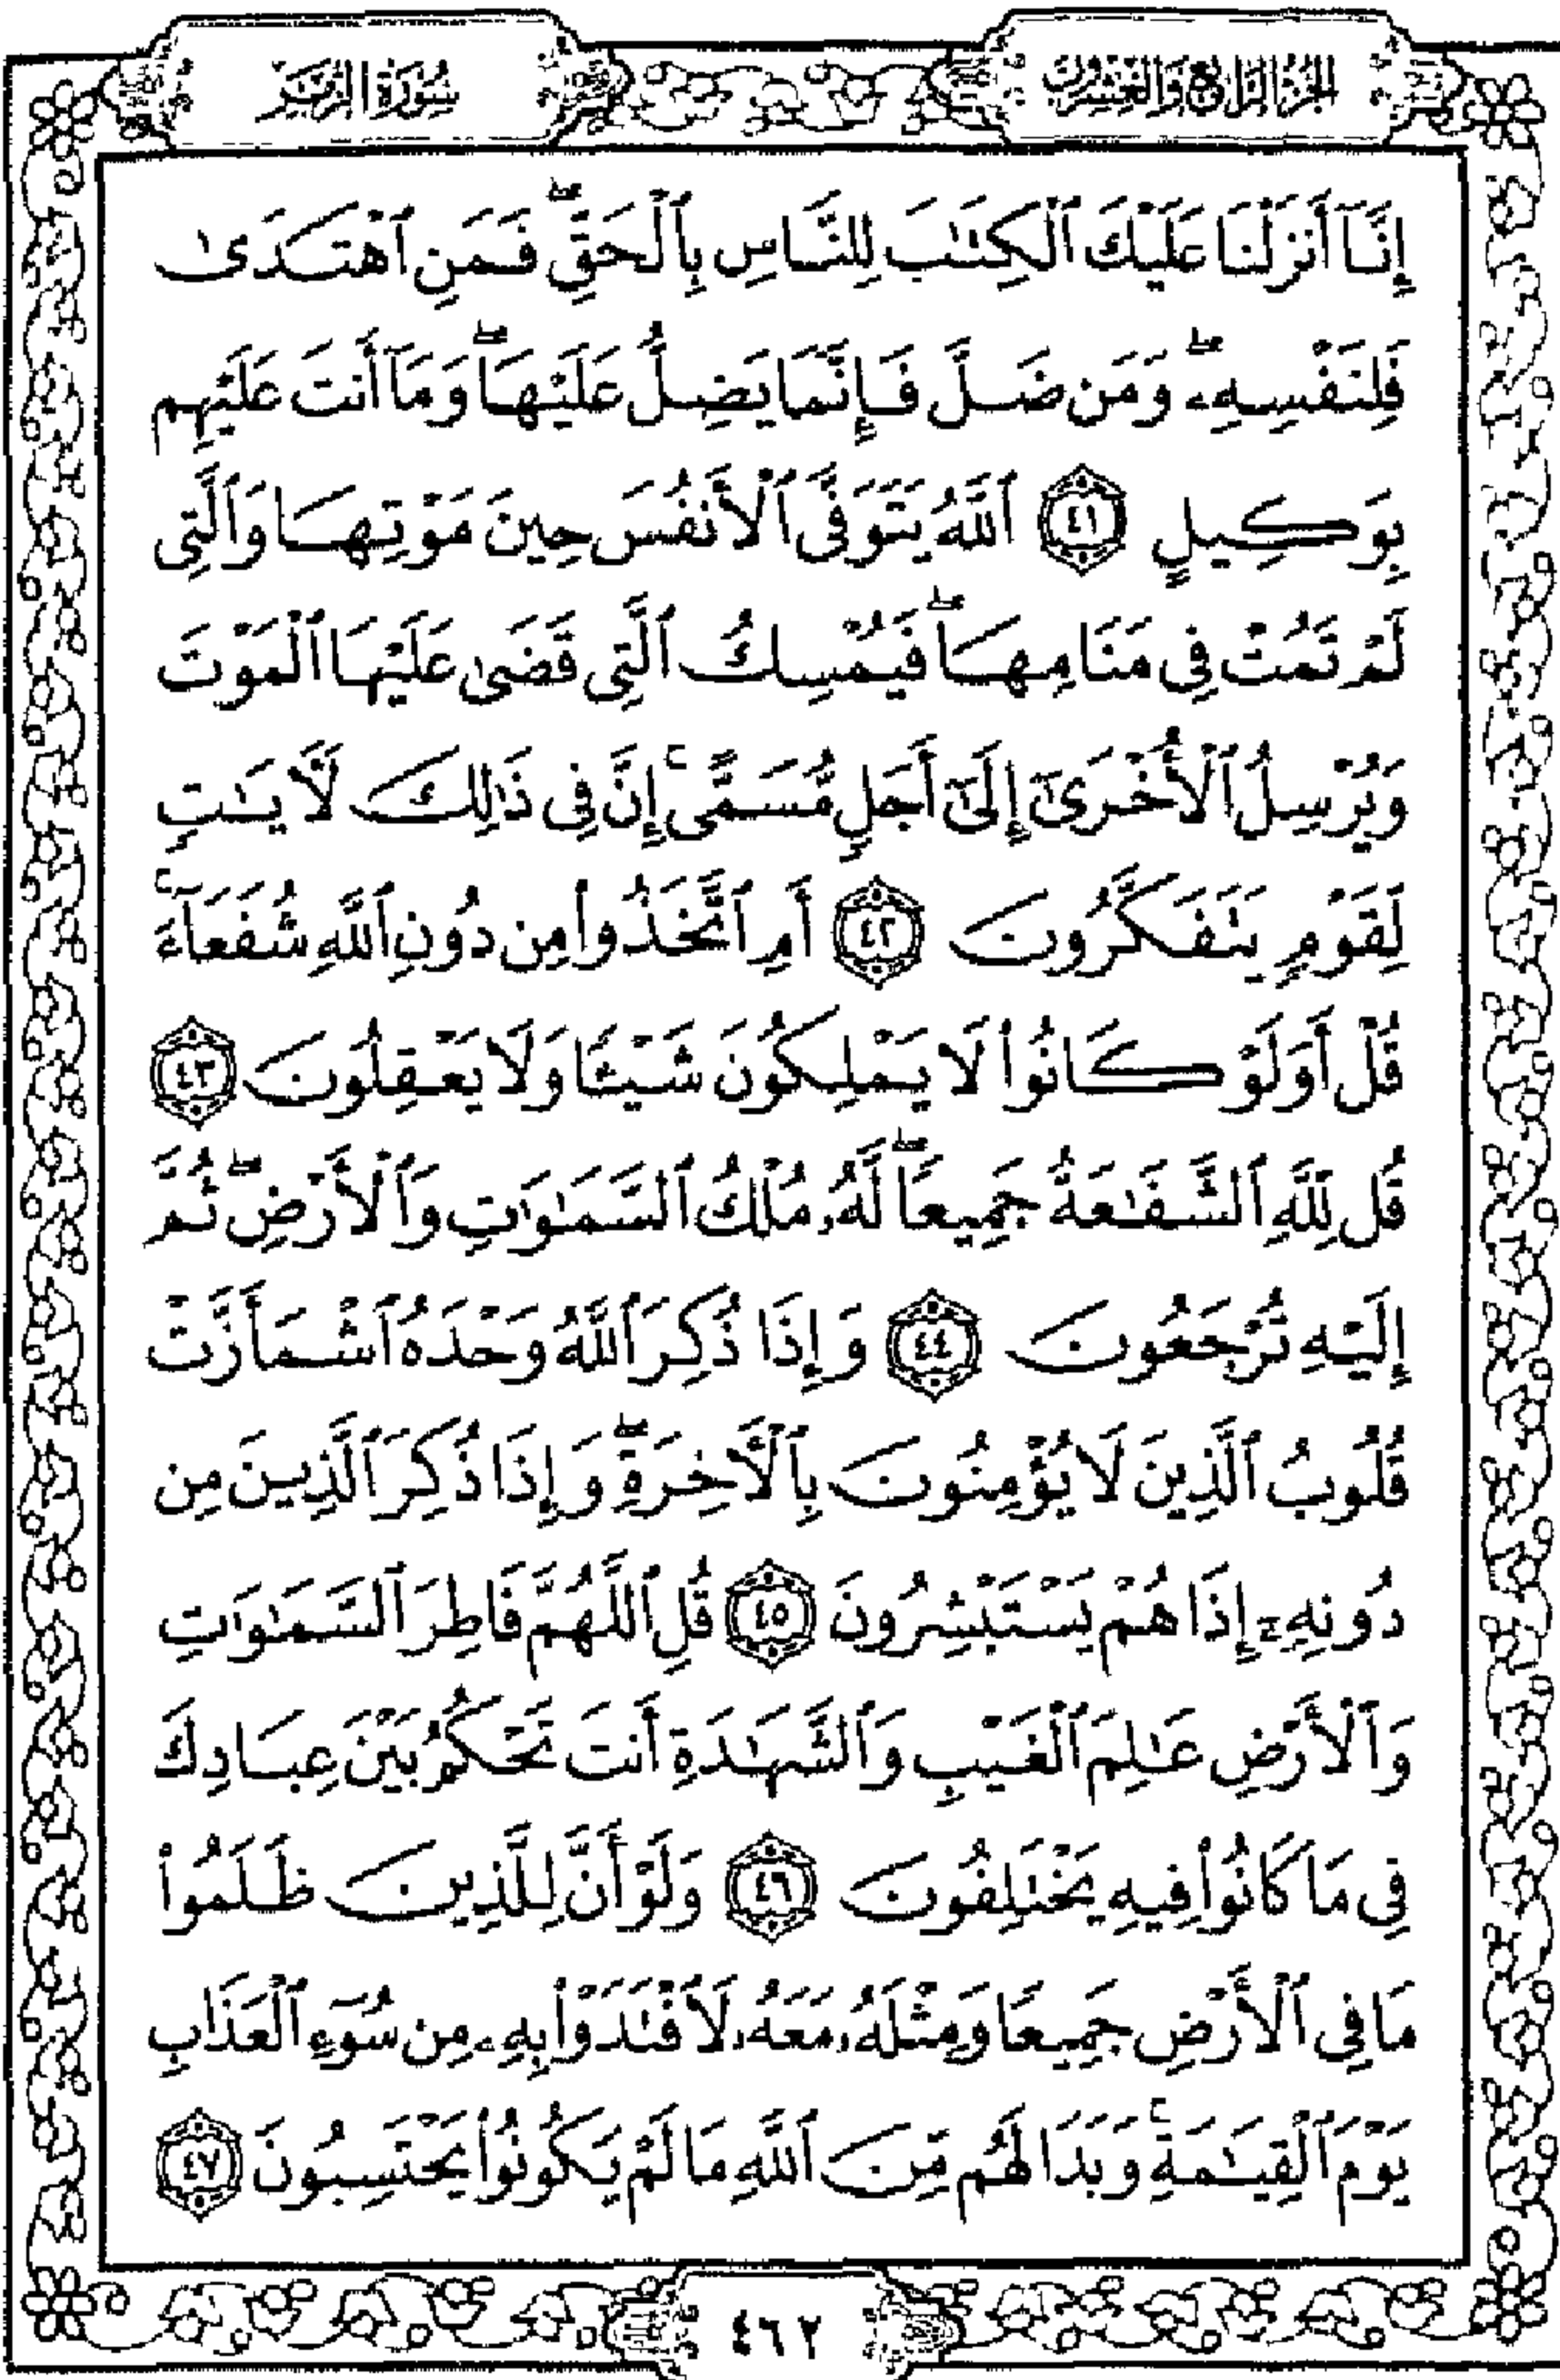 سُورَةُ الزُّمَرِ
الجُزْءُ الرَّابِعُ وَالعِشْرُونَ
إِنَّآ أَنزَلْنَا عَلَيْكَ ٱلْكِتَٰبَ لِلنَّاسِ بِٱلْحَقِّۖ فَمَنِ ٱهْتَدَىٰ
فَلِنَفْسِهِۦۖ وَمَن ضَلَّ فَإِنَّمَا يَضِلُّ عَلَيْهَاۖ وَمَآ أَنتَ عَلَيْهِم
بِوَكِيلٍ ٤١ ٱللَّهُ يَتَوَفَّى ٱلْأَنفُسَ حِينَ مَوْتِهَا وَٱلَّتِى
لَمْ تَمُتْ فِى مَنَامِهَاۖ فَيُمْسِكُ ٱلَّتِى قَضَىٰ عَلَيْهَا ٱلْمَوْتَ
وَيُرْسِلُ ٱلْأُخْرَىٰٓ إِلَىٰٓ أَجَلٍ مُّسَمًّىۚ إِنَّ فِى ذَٰلِكَ لَءَايَٰتٍ
لِّقَوْمٍ يَتَفَكَّرُونَ ٤٢ أَمِ ٱتَّخَذُوا۟ مِن دُونِ ٱللَّهِ شُفَعَآءَۚ
قُلْ أَوَلَوْ كَانُوا۟ لَا يَمْلِكُونَ شَيْـًٔا وَلَا يَعْقِلُونَ ٤٣
قُل لِّلَّهِ ٱلشَّفَٰعَةُ جَمِيعًاۖ لَّهُۥ مُلْكُ ٱلسَّمَٰوَٰتِ وَٱلْأَرْضِۖ ثُمَّ
إِلَيْهِ تُرْجَعُونَ ٤٤ وَإِذَا ذُكِرَ ٱللَّهُ وَحْدَهُ ٱشْمَأَزَّتْ
قُلُوبُ ٱلَّذِينَ لَا يُؤْمِنُونَ بِٱلْءَاخِرَةِۖ وَإِذَا ذُكِرَ ٱلَّذِينَ مِن
دُونِهِۦٓ إِذَا هُمْ يَسْتَبْشِرُونَ ٤٥ قُلِ ٱللَّهُمَّ فَاطِرَ ٱلسَّمَٰوَٰتِ
وَٱلْأَرْضِ عَٰلِمَ ٱلْغَيْبِ وَٱلشَّهَٰدَةِ أَنتَ تَحْكُمُ بَيْنَ عِبَادِكَ
فِى مَا كَانُوا۟ فِيهِ يَخْتَلِفُونَ ٤٦ وَلَوْ أَنَّ لِلَّذِينَ ظَلَمُوا۟
مَا فِى ٱلْأَرْضِ جَمِيعًا وَمِثْلَهُۥ مَعَهُۥ لَٱفْتَدَوْا۟ بِهِۦ مِن سُوٓءِ ٱلْعَذَابِ
يَوْمَ ٱلْقِيَٰمَةِۚ وَبَدَا لَهُم مِّنَ ٱللَّهِ مَا لَمْ يَكُونُوا۟ يَحْتَسِبُونَ ٤٧
٤٦٢